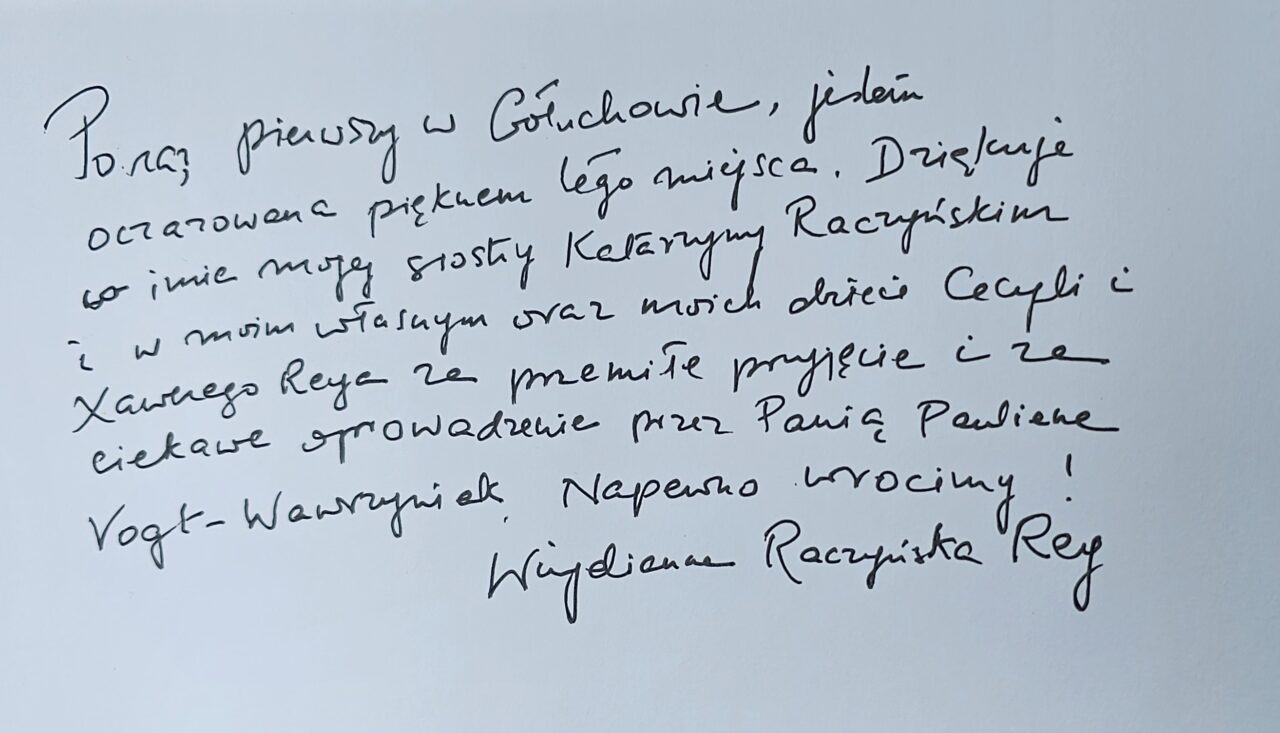 Po raz pierwszy w Gołuchowie, jestem
oczarowana pięknem tego miejsca. Dziękuje
w imie mojej siostry Katarzyny Raczyńskim
i w moim własnym oraz moich dzieci Cecylii i
Xawerego Reya za przemiłe przyjęcie i za
ciekawe oprowadzenie przez Panią Pauline
Vogt-Wawrzyniak. Napewno wrocimy!
Wirydianna Raczyńska Rey